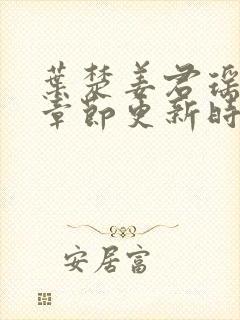 葉楚姜君瑤
章節更新時
安居富